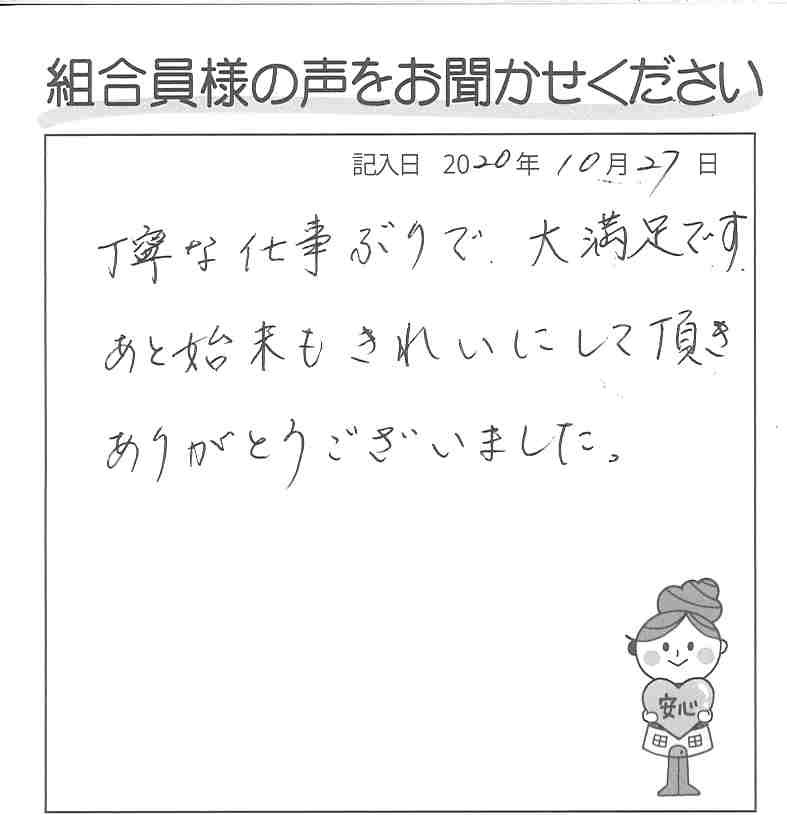 組合員様の声をお聞かせください
記入日 2020年 10月27日
丁寧な仕事ぶりで、大満足です。
あと始末もきれいにして頂き
ありがとうございました。
安心